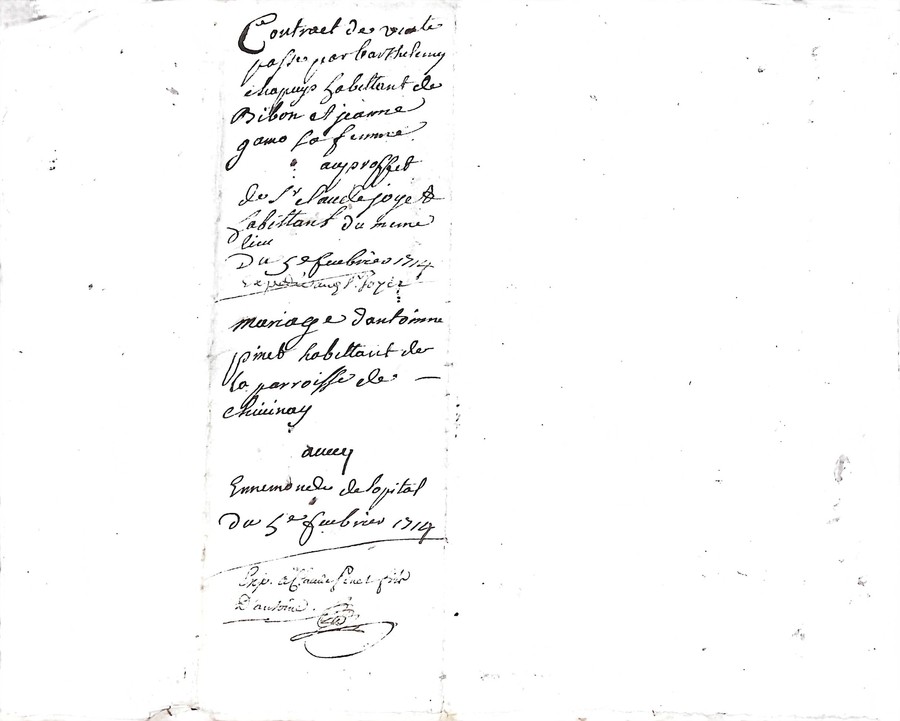 Contract de vente
passe par barthelemy
chapuys habittant de
Bibon et jeanne
gamo sa femme
au proffit
de Sr claude joyet
habittant du meme
lieu
Du 5e feubrier 1714
expedié aud Sr Joyet
mariage d'antoinne
pinet habittant de
la parroisse de
chiuinay
auecq
Ennemonde de lopital
Du 5e feubrier 1714
Exp. a Claude Pinet fils
D'antoine.